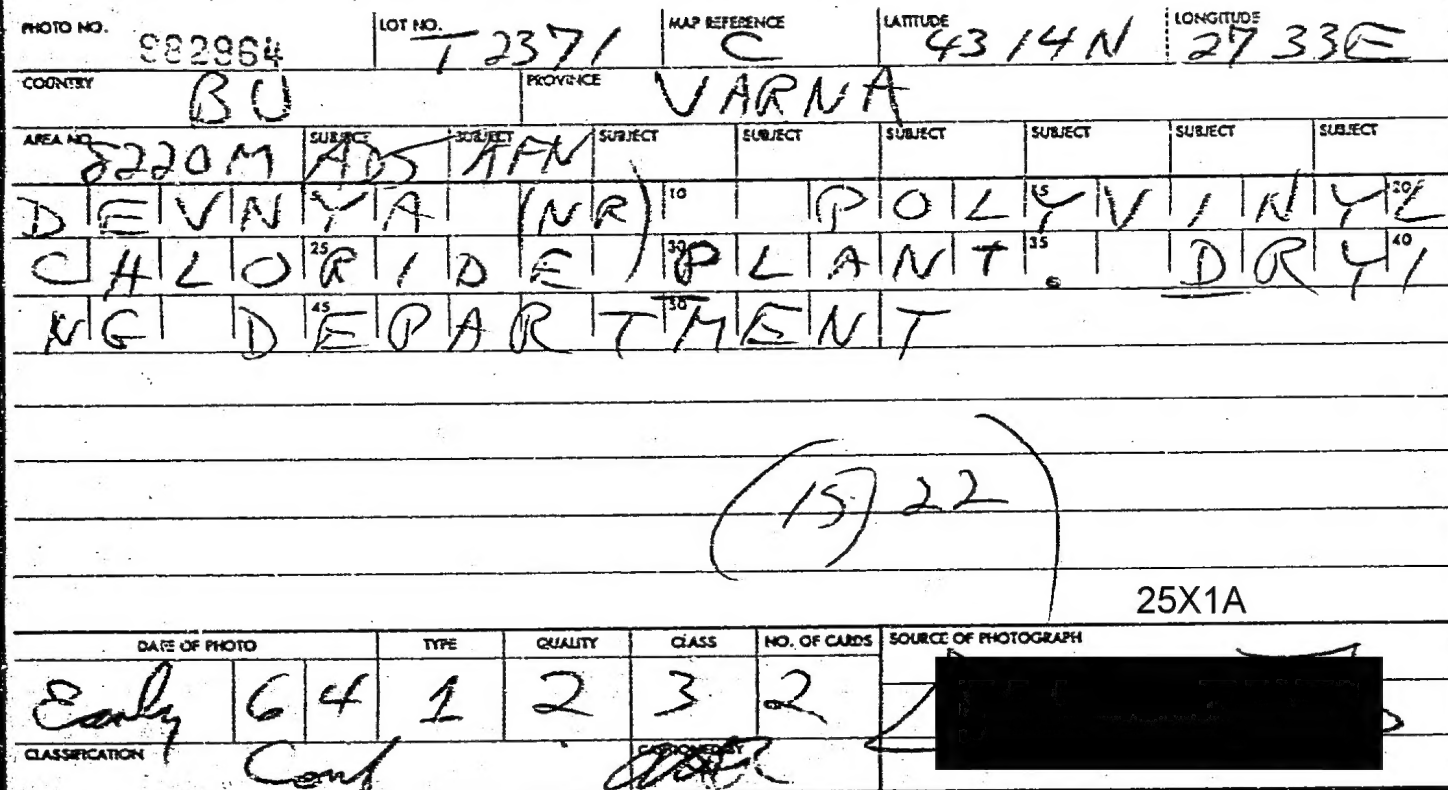 PHOTO NO. 982964 LOT NO. T 2371 MAP REFERENCE C LATITUDE 43 14 N LONGITUDE 27 33 E
COUNTRY BU PROVINCE VARNA
AREA NO. 8220M SUBJECT ADS SUBJECT AFN SUBJECT SUBJECT SUBJECT SUBJECT SUBJECT SUBJECT
DEVNYA (NR) 10 POLYVINYL 20
CHLORIDE 25 30 PLANT. 35 DRYI 40
NG DEPARTMENT 45 50
(15) 22
25X1A
DATE OF PHOTO TYPE QUALITY CLASS NO. OF CARDS SOURCE OF PHOTOGRAPH
Early 6 4 1 2 3 2
CLASSIFICATION Conf CAPTIONED BY